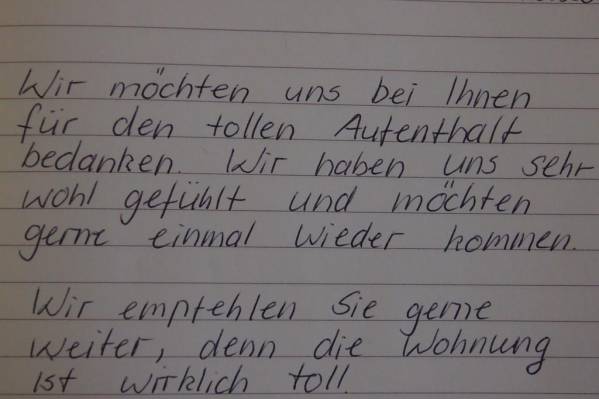 Wir möchten uns bei Ihnen
für den tollen Aufenthalt
bedanken. Wir haben uns sehr
wohl gefühlt und möchten
gerne einmal wieder kommen.
Wir empfehlen Sie gerne
weiter, denn die Wohnung
ist wirklich toll.